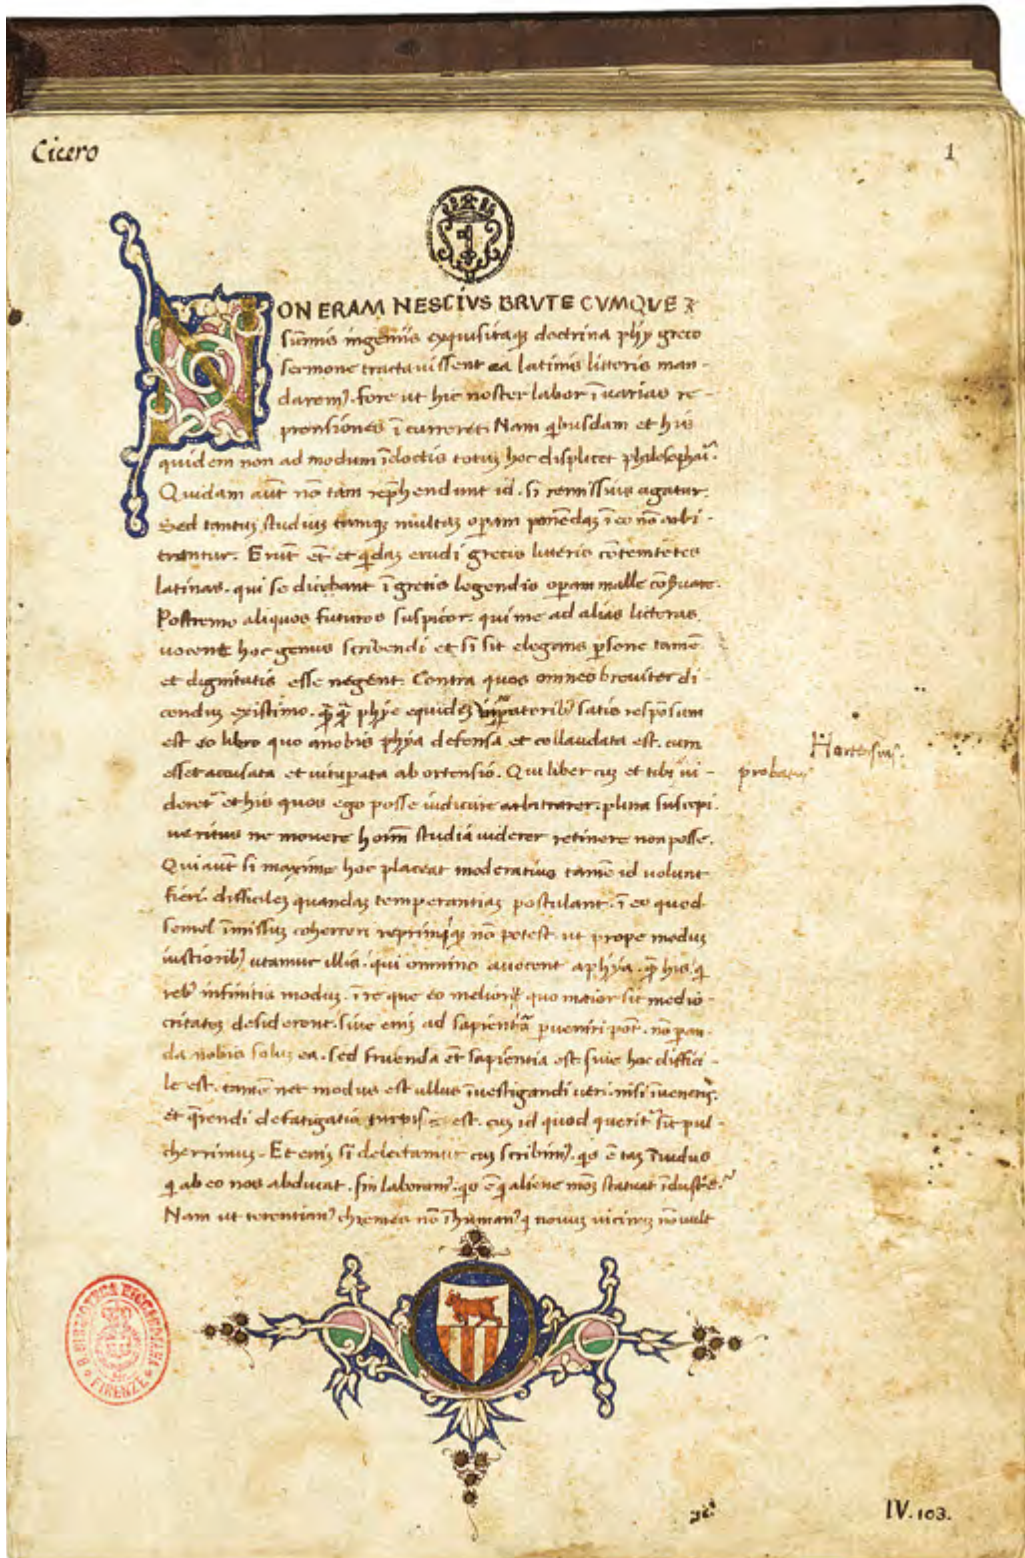 Cicero
1
NON ERAM NESCIVS BRVTE CVMQUE
sũmis ingeniis exquisitaq; doctrina phỹ greco
sermone tractauissent ea latinis litteris man-
darem⁹. fore ut hic noster labor ĩ uarias re-
prensiones ĩ curreret. Nam qͥbusdam et his
quidem non ad modum ĩdoctis totuʒ hoc displicet philosophaȓ.
Quidam aut̃ nõ tam rep̃hendunt id. si remissius agatur.
Sed tantuʒ studiuʒ tamqʒ multaʒ operam ponẽdaʒ ĩ eo nõ arbi-
trantur. Erũt et̃ et qͥdaʒ erudi grecis litteris cõtemtetes
latinas. qui se dicebant ĩ grecis legendis operam malle cõsuare.
Postremo aliquos futuros suspicor. qui me ad alias litteras
uocent hoc genus scribendi et si sit elegans persone tamẽ
et dignitatis esse negent. Contra quos omnes breuiter di-
cenduʒ existimo. phỹe equideʒ satis respõsum
est eo libro quo anobis phỹa defensa et collaudata est. cum
esset accusata et uituperata ab ortensio. Qui liber cuʒ et tibi ui-
Hortensius.
probatus
deret² et his quos ego posse iudicare arbitrarer. plura suscepi
ueritus ne mouere hoim̃ studia uiderer retinere non posse.
Qui aut̃ si maxime hoc placeat moderatius tamẽ id uolunt
fieri. difficileʒ quandaʒ temperantiaʒ postulant. ĩ eo quod
semel ĩmissuʒ coherceri reprimiqʒ nõ potest. ut prope moduʒ
iustiorib⁹ utamur illis. qui omnino auocent a phỹa. his q̃
reb⁹ infinitis moduʒ. ĩ re que eo melior quo maior sit medio-
critateʒ desiderent. siue eniʒ ad sapientiã perueniri pot̃. nõ paran-
da nobis soluʒ ea. sed fruenda et̃ sapientia est. siue hoc diffici-
le est. tamẽ nec modus est ullus ĩuestigandi ueri. nisi ĩueneris.
et q̃rendi defatigatio turpis est. cuʒ id quod querit² sit pul-
cherrimuʒ. Et eniʒ si delectamur cuʒ scribim⁹. qͥs ẽ taʒ ĩuidus
qͥ ab eo nos abducat. sin laboram⁹. qͥs ẽ qͥ aliene moduʒ statuat ĩdustrie.
Nam ut terentian⁹ chremes nõ ĩhuman⁹ qͥ nouuʒ uicinuʒ nõ uult
R. BIBLIOTECA RICCARDIANA
FIRENZE
IV. 103.